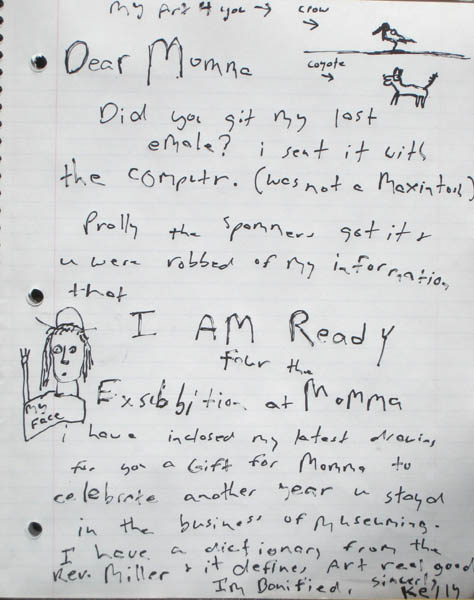 my Art 4 you → crow →
coyote →
Dear Momma
Did you git my last
emale? i sent it with
the computr. (was not a Maxintosh)
Prolly the spammers got it &
u were robbed of my information
that
I AM Ready
four the
Exsibbition at Momma
my
Face
i have inclosed my latest drawing
for you a Gift for Momma to
celebrate another year u stayd
in the business of Museuming.
I have a dictionary from the
Rev. Miller & it defines Art real good
I'm Bonified. sincerly
Kelly